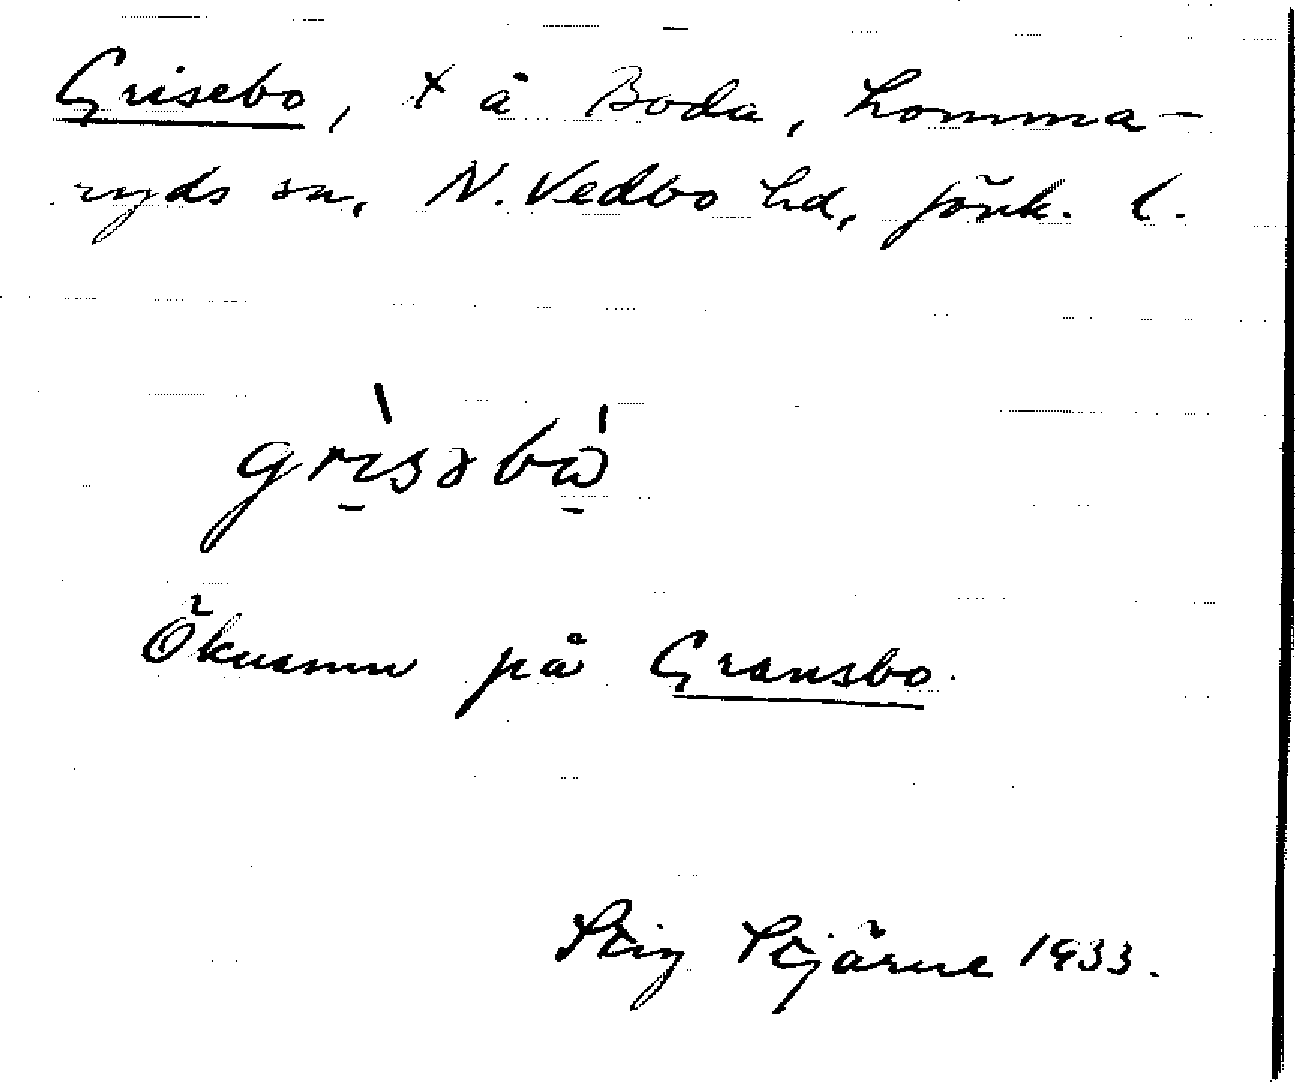 Grisebo, x å Boda, Lomma-
ryds sn, N. Vedbo hd, Jönk. l.
grisəbo
Öknamn på Gransbo.
Stig Stjärne 1933.